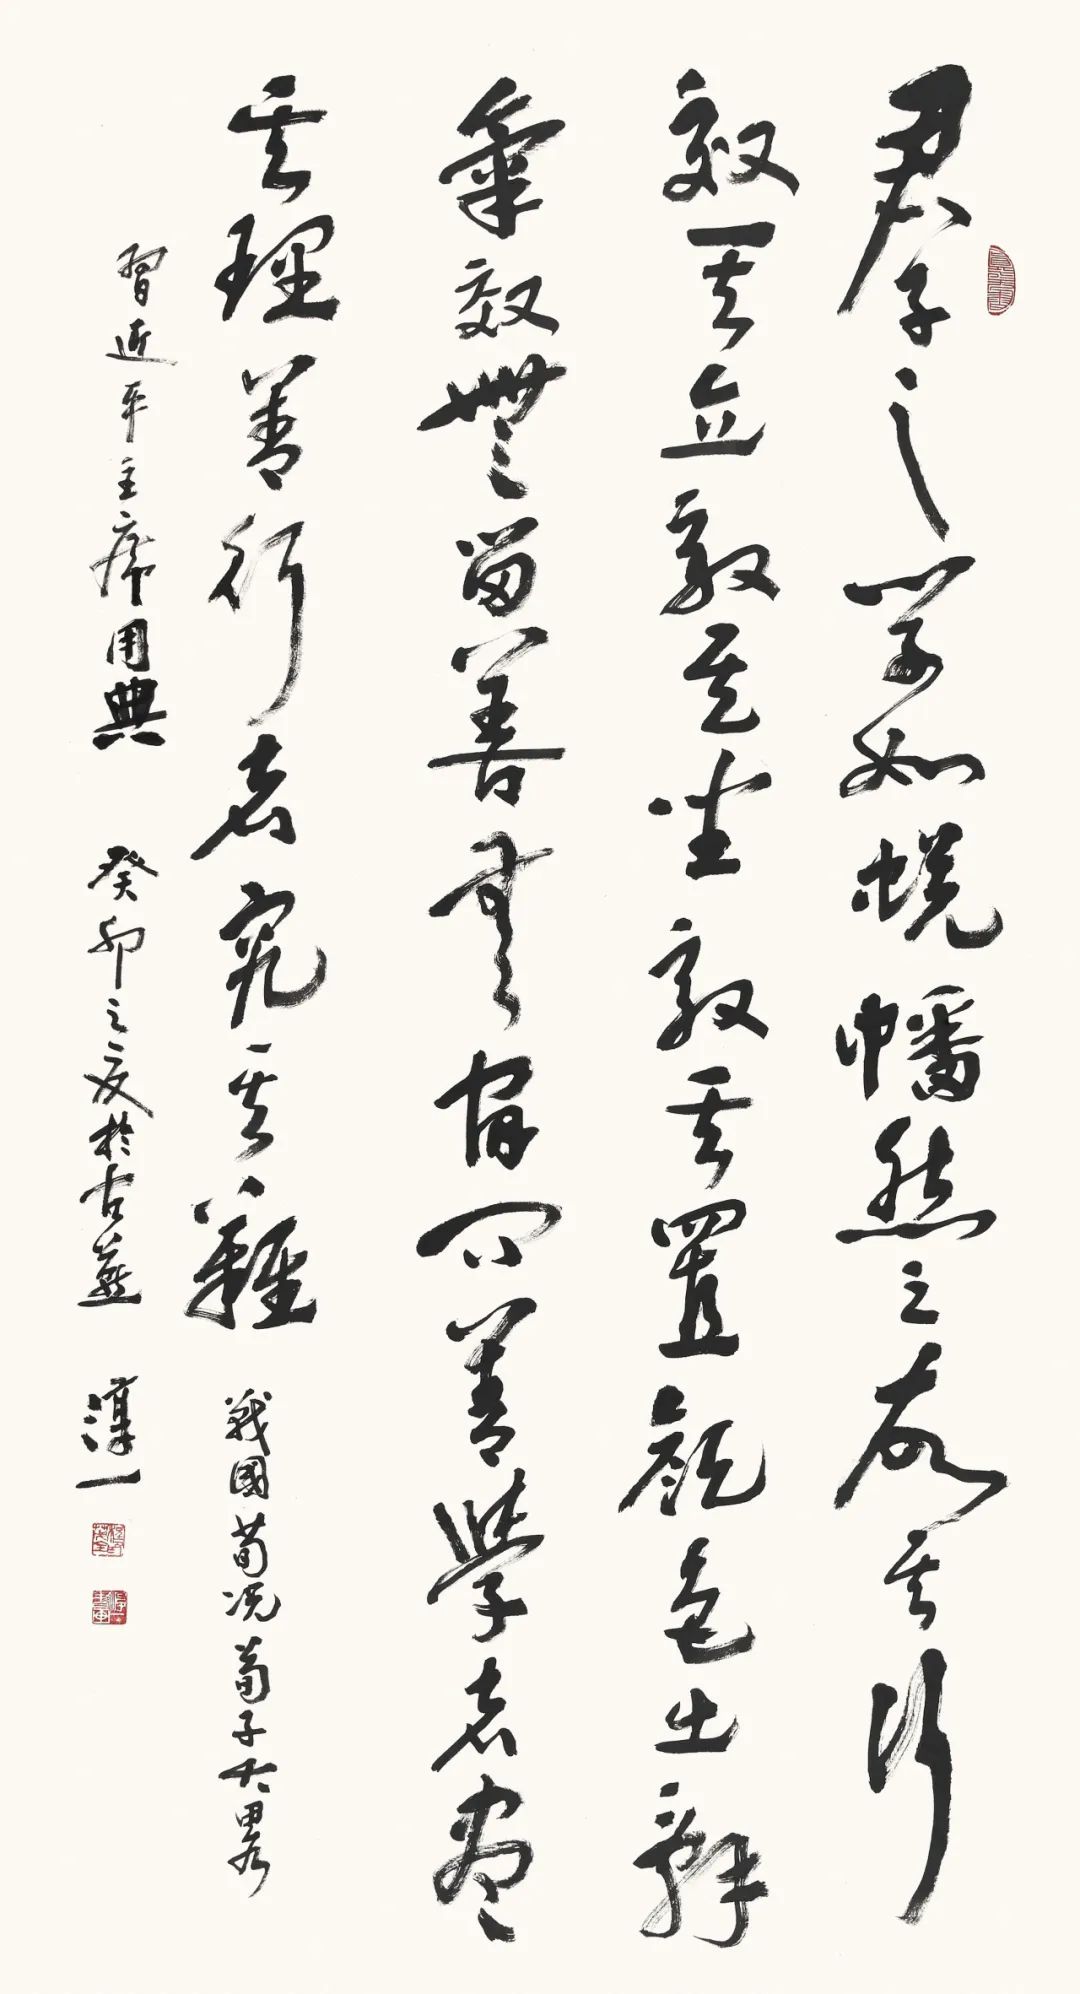 君子之学如蜕幡然之故其行
效其立效其坐效其置顔色出辭
氣效無留善無宿問善學者盡
其理善行者究其難 戰國荀況荀子大畧
習近平主席用典 癸卯之夏於古燕 淳一